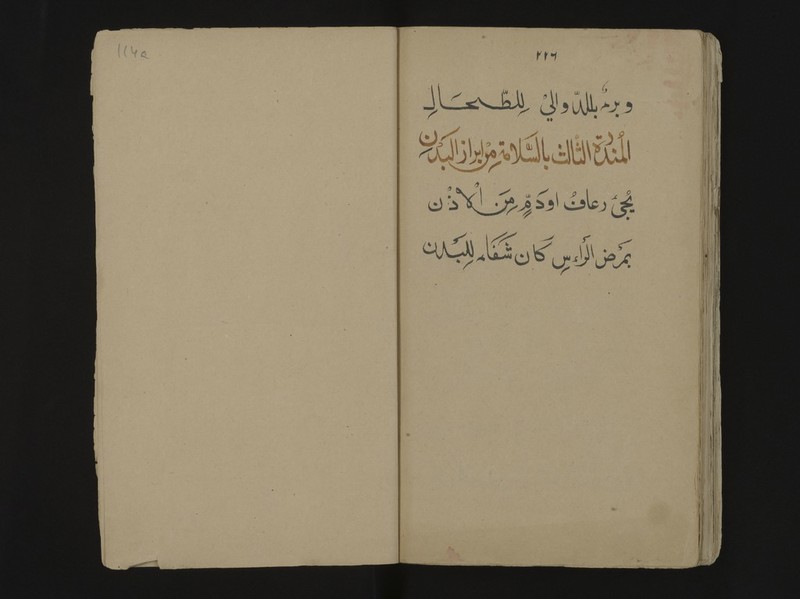 114a
٢٢٦
وبرء بالدوالي للطحال
المنذرة الثالث بالسلامة من ابراز البدن
يجئ رعاف او دم من الاذن
بمرض الراس كان شفاء للبدن